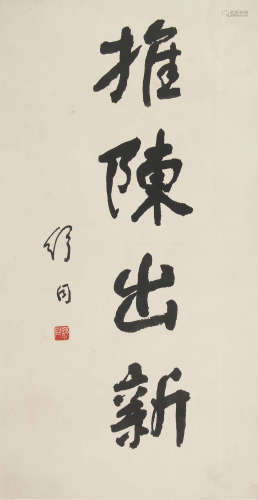 推陳出新
舒同